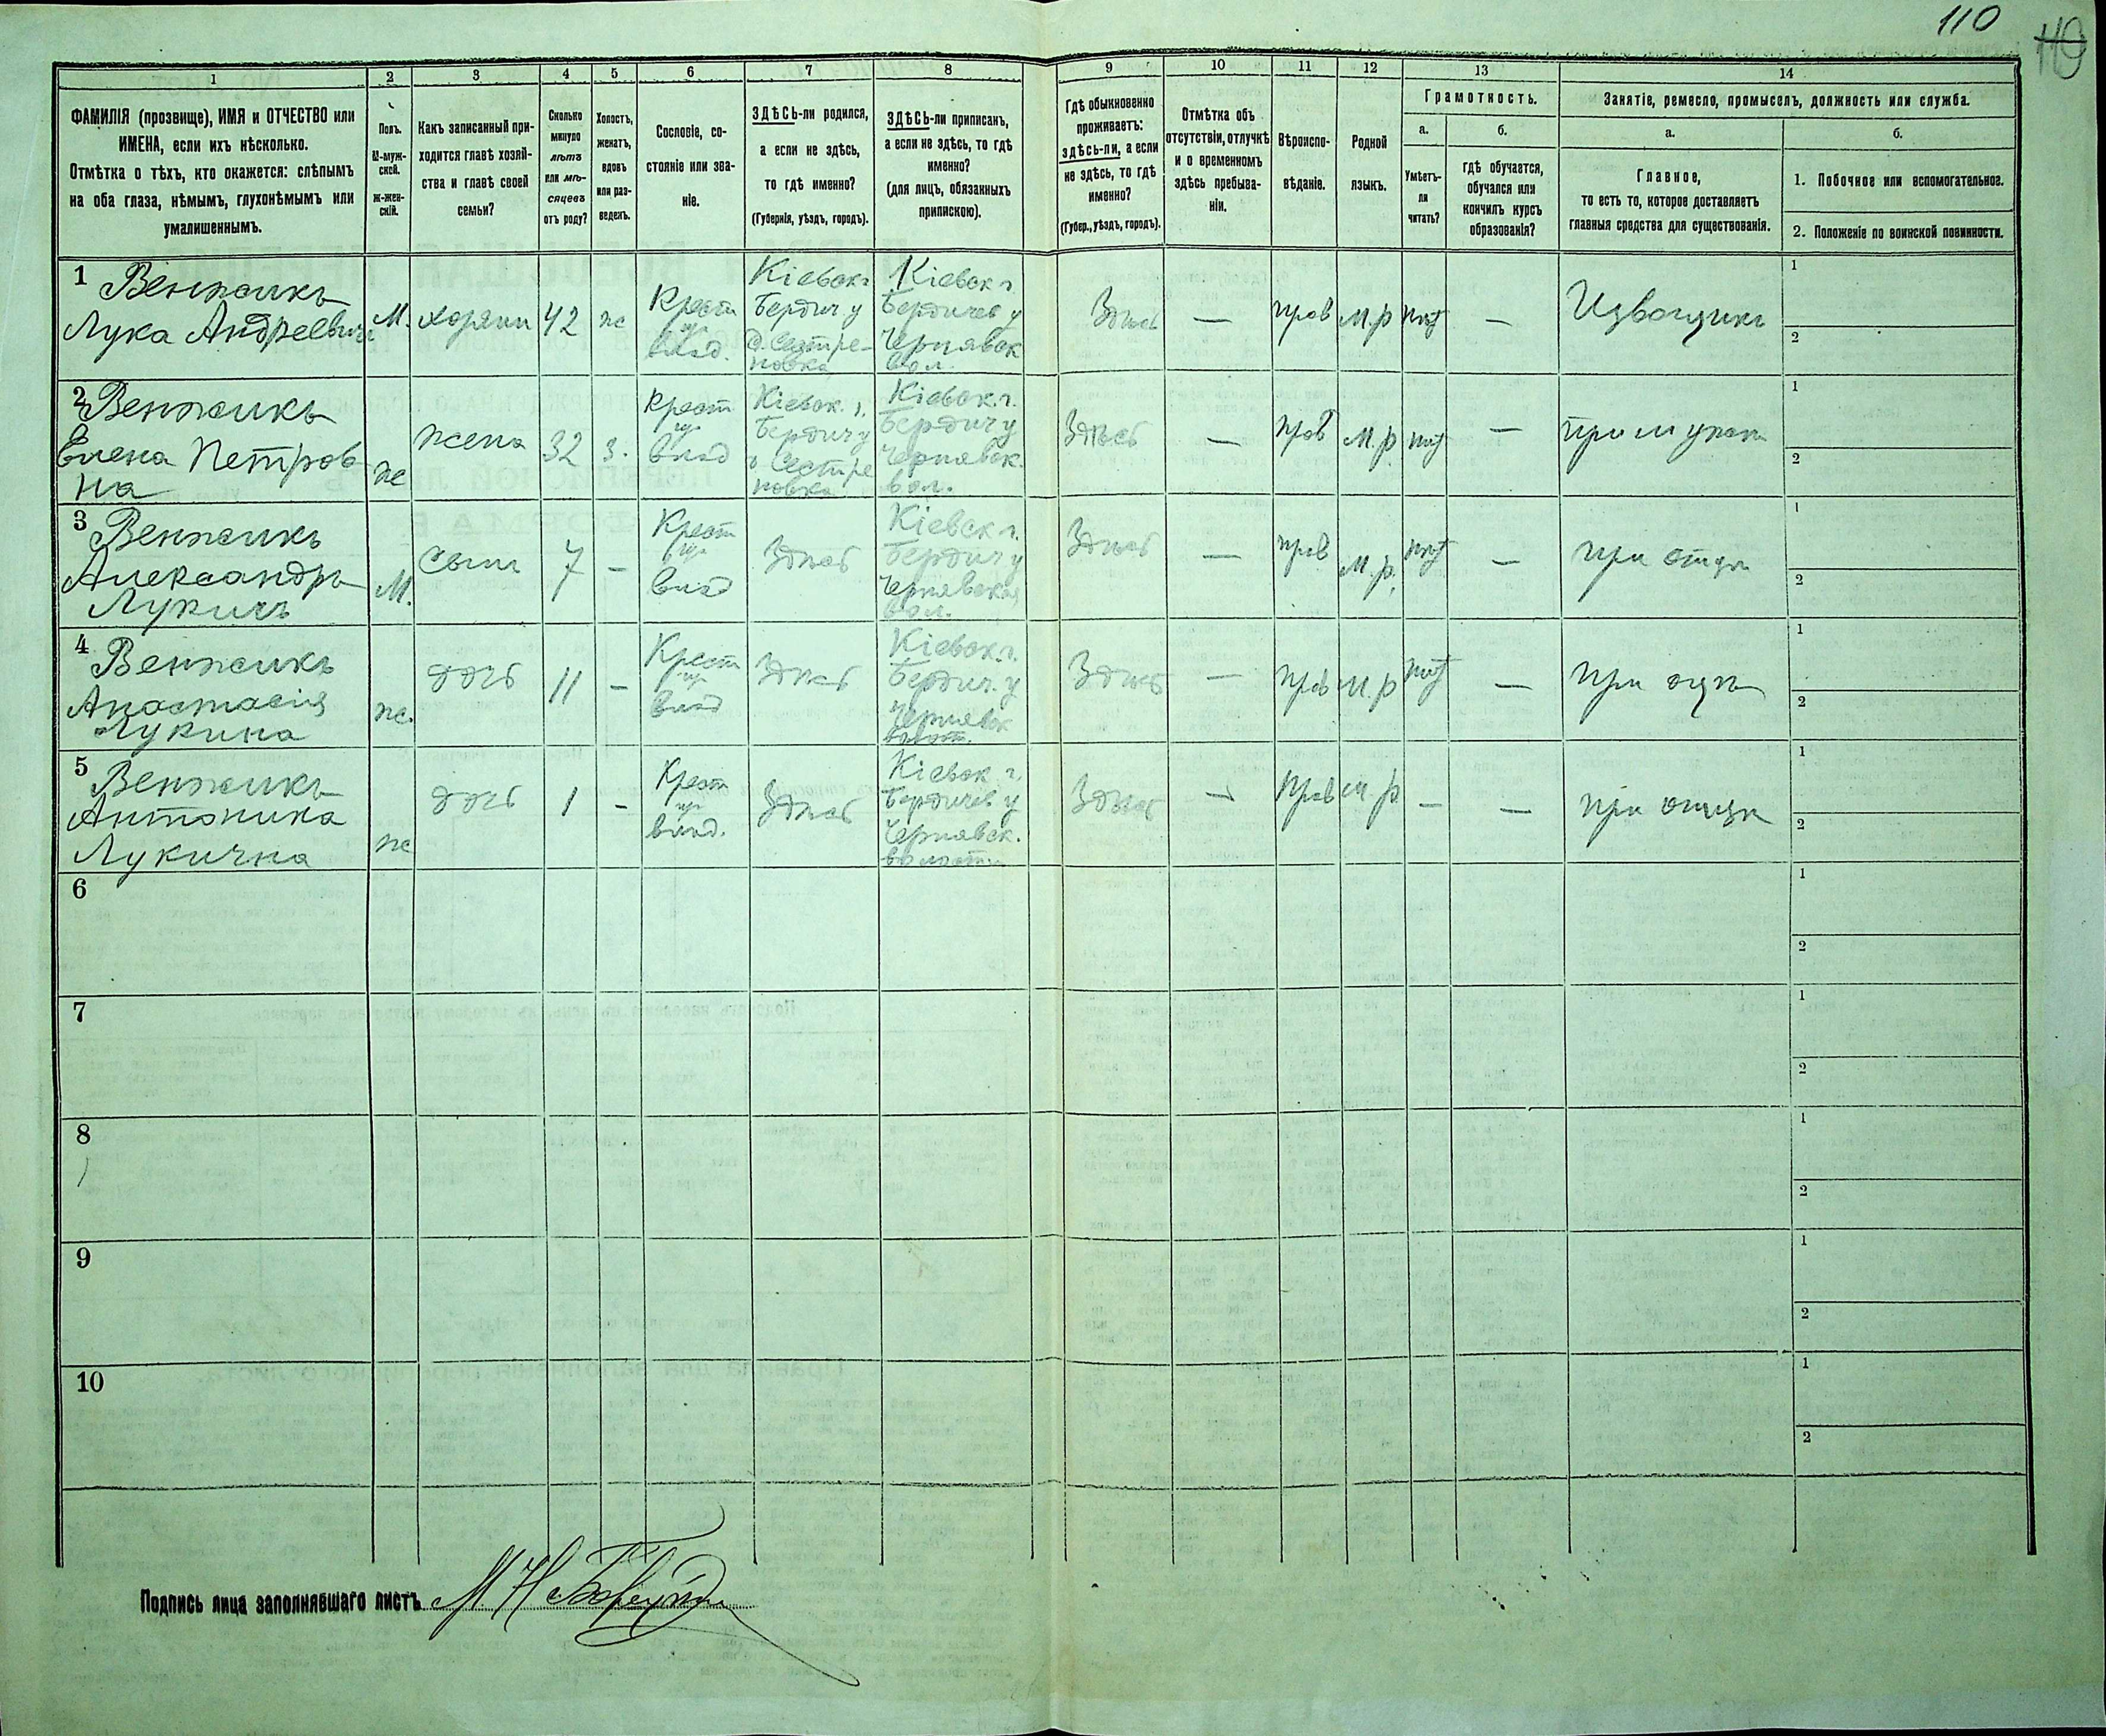 110
110
1
2
3
4
5
6
7
8
9
10
11
12
13
14
ФАМИЛІЯ (прозвище), ИМЯ и ОТЧЕСТВО или
ИМЕНА, если ихъ нѣсколько.
Отмѣтка о тѣхъ, кто окажется: слѣпымъ
на оба глаза, нѣмымъ, глухонѣмымъ или
умалишеннымъ.
Полъ.
М-муж-
ской.
Ж-жен-
скій.
Какъ записанный при-
ходится главѣ хозяй-
ства и главѣ своей
семьи?
Сколько
минуло
лѣтъ
или мѣ-
сяцевъ
отъ роду?
Холостъ,
женатъ,
вдовъ
или раз-
веденъ.
Сословіе, со-
стояніе или зва-
ніе.
ЗДѢСЬ-ли родился,
а если не здѣсь,
то гдѣ именно?
(Губернія, уѣздъ, городъ).
ЗДѢСЬ-ли приписанъ,
а если не здѣсь, то гдѣ
именно?
(для лицъ, обязанныхъ
припискою).
Гдѣ обыкновенно
проживаетъ:
здѣсь-ли, а если
не здѣсь, то гдѣ
именно?
(Губер., уѣздъ, городъ).
Отмѣтка объ
отсутствіи, отлучкѣ
и о временномъ
здѣсь пребыва-
ніи.
Вѣроиспо-
вѣданіе.
Родной
языкъ.
Грамотность.
а.
Умѣетъ-
ли
читать?
б.
гдѣ обучается,
обучался или
кончилъ курсъ
образованія?
Занятіе, ремесло, промыселъ, должность или служба.
а.
Главное,
то есть то, которое доставляетъ
главныя средства для существованія.
б.
1. Побочное или вспомогательное.
2. Положеніе по воинской повинности.
1 Венжикъ
Лука Андреевичъ
М.
хозяин
42
ж
Крест
влад.
Кіевск г
Бердич. у
д. Сестре-
новка
Кіевск г.
Бердичев у
Чернявск
вол.
Здѣсь
—
прав
М.р
нѣт
—
Извощикъ
1
2
2 Венжикъ
Елена Петров
на
ж
жена
32
з.
Крест
влад
Кіевск. г.
Бердич у
Сестре
новка
Кіевск. г.
Бердич у
Чернявск.
вол.
Здѣсь
—
прав
М.р
нѣт
—
при мужѣ
1
2
3 Венжикъ
Александръ
Лукичъ
М.
сынъ
7
—
Крест
влад
Здѣсь
Кіевск г.
Бердич у
Чернявская
вол.
Здѣсь
—
прав
М.р.
нѣт
—
при отцѣ
1
2
4 Венжикъ
Анастасія
Лукина
ж.
дочь
11
—
Крест
влад
Здѣсь
Кіевск. г.
Бердич. у
Чернявск
волост.
Здѣсь
—
прав
М.р
нѣт
—
при отцѣ
1
2
5 Венжикъ
Антонина
Лукична
ж
дочь
1
—
Крест
влад.
Здѣсь
Кіевск г.
Бердичев у
Чернявск.
волости
Здѣсь
—
Прав
М.р.
—
—
при отцѣ
1
2
6
1
2
7
1
2
8
1
2
9
1
2
10
1
2
Подпись лица заполнявшаго листъ